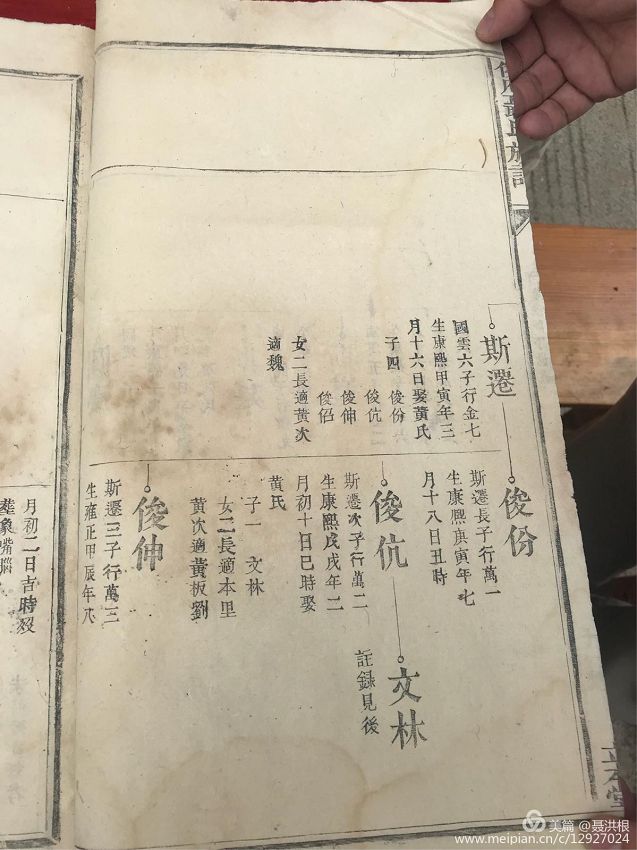 氏族
斯遷
國雲六子行金七
生康熙甲寅年三
月十六日娶黃氏
子四
俊份
俊伉
俊伸
俊佋
女二長適黃次
適魏
俊份
斯遷長子行萬一
生康熙庚寅年七
月十八日丑時
俊伉
斯遷次子行萬二
生康熙戊戌年二
月初十日巳時娶
黃氏
子一 文林
女二長適本里
黃次適黃板劉
文林
註錄見後
俊伸
斯遷三子行萬三
生雍正甲辰年八
月初二日吉時歿
葬象嘴腦
美篇 @聶洪根
www.meipian.cn/c/12927024